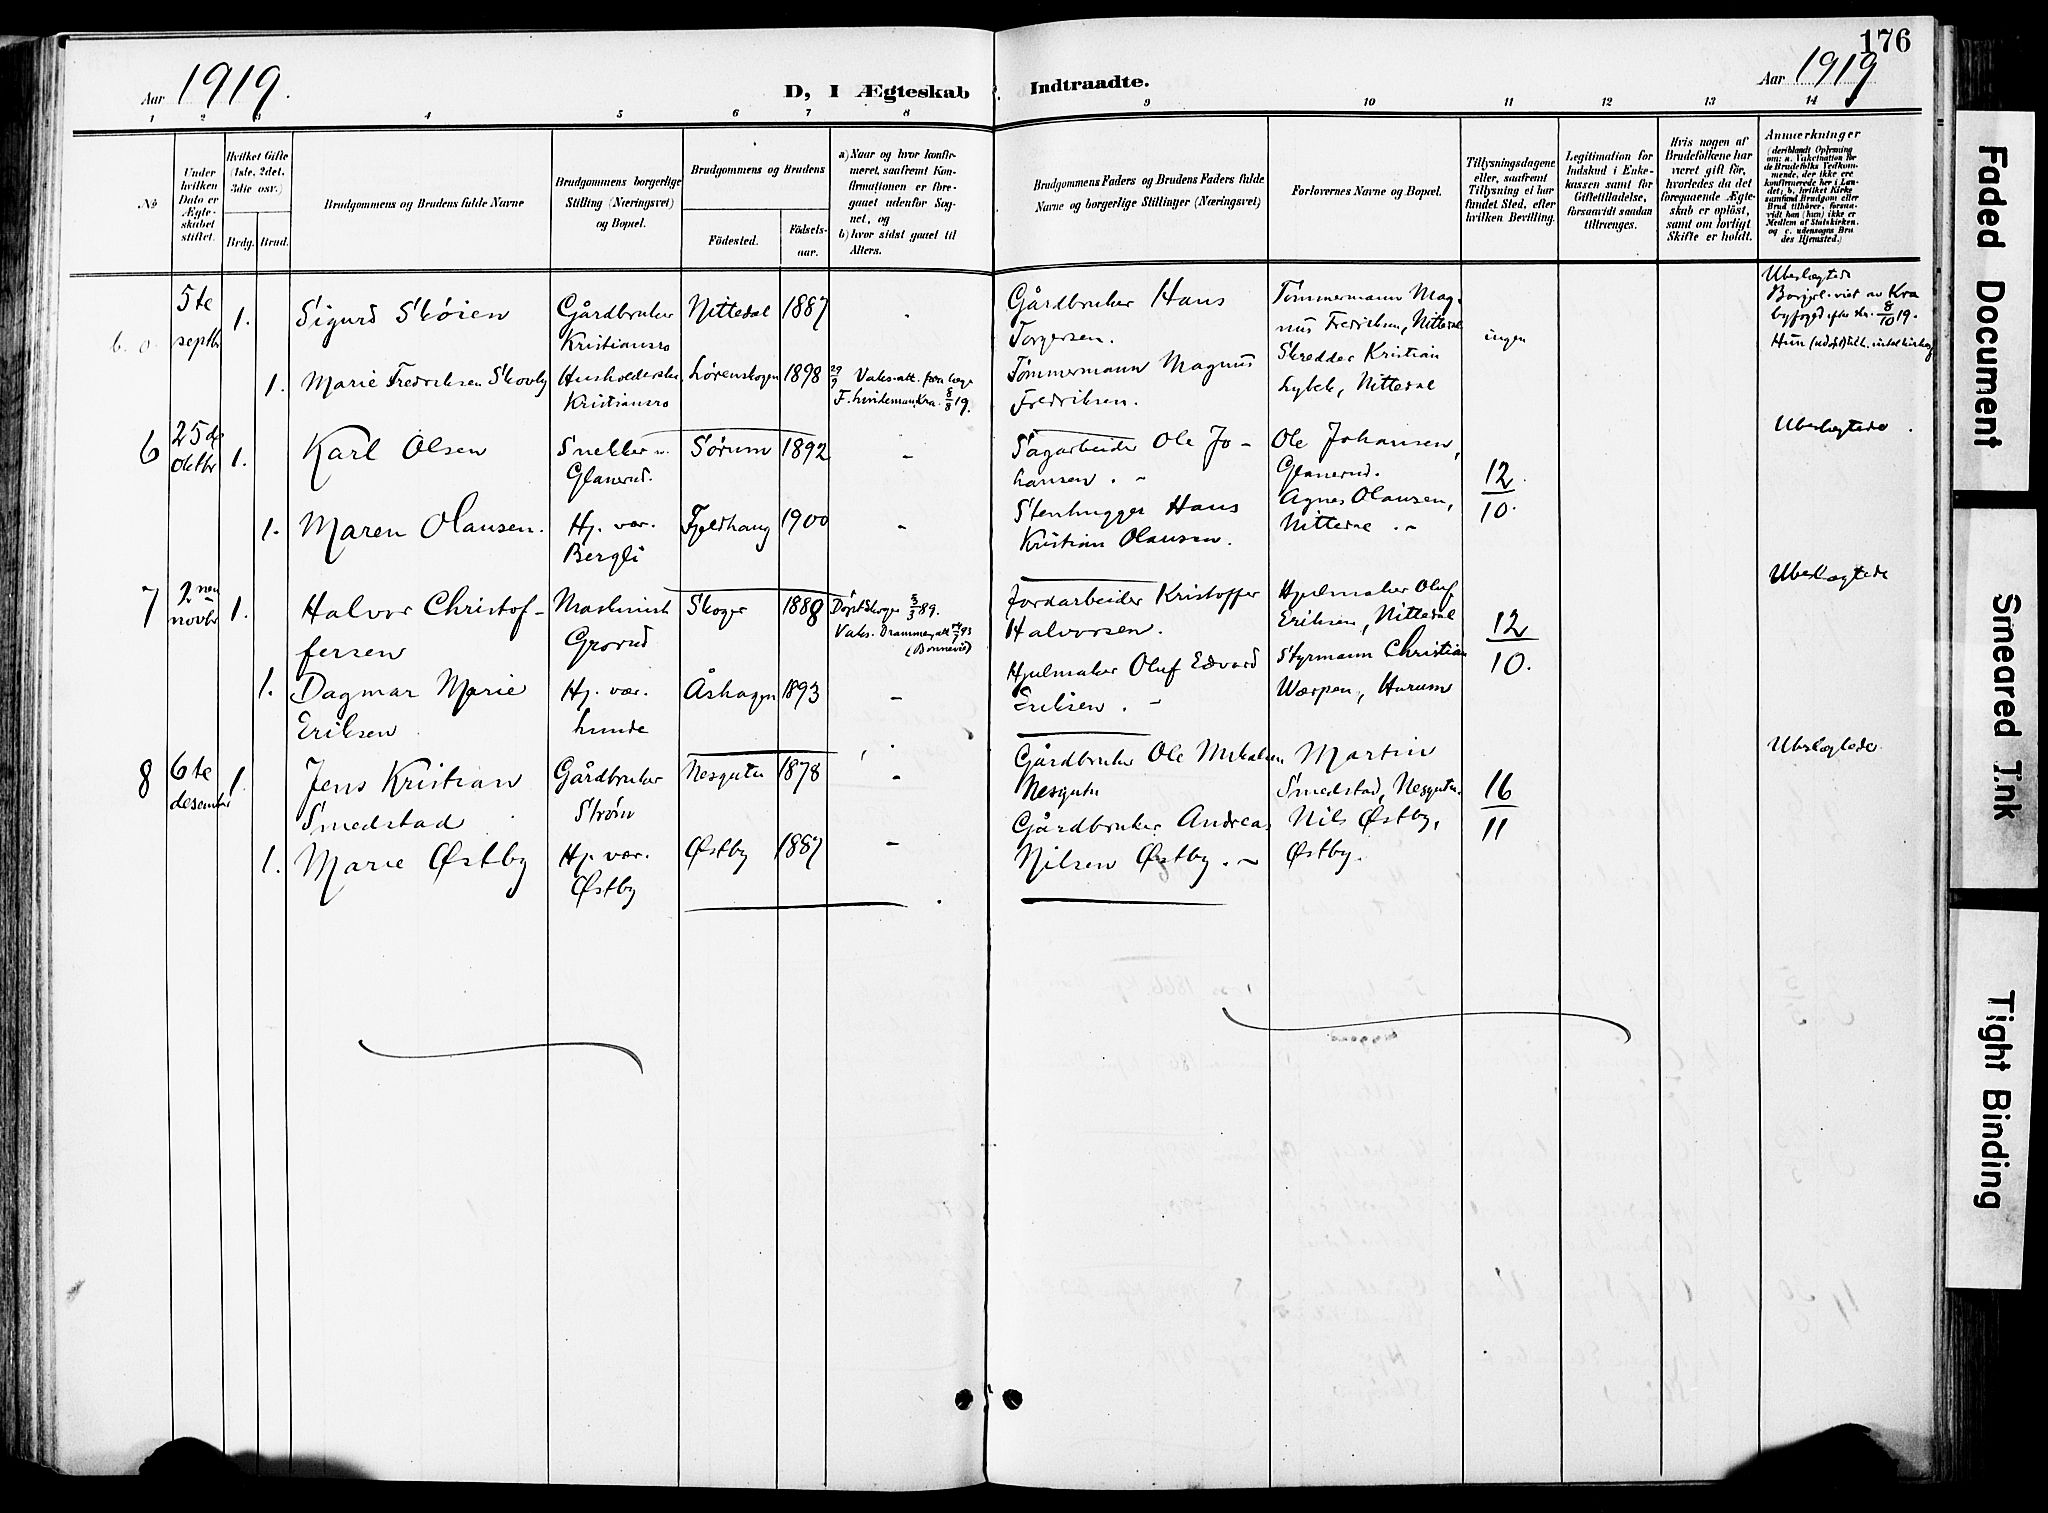 176
Aar 1919.
D, I Ægteskab Indtraadte.
Aar 1919
1 2 3 4 5 6 7 8 9 10 11 12 13 14
No
Under hvilken Dato er Ægteskabet stiftet.
Hvilket Gifte (1ste, 2det, 3die osv.)
Brdg. Brud.
Brudgommens og Brudens fulde Navne
Brudgommens borgerlige Stilling (Næringsvei) og Bopæl.
Brudgommens og Brudens
Fødested.
Fødselsaar.
a) Naar og hvor konfirmeret, saafremt Konfirmationen er foregaaet udenfor Sognet, og
b) hvor sidst gaaet til Alters.
Brudgommens Faders og Brudens Faders fulde Navne og borgerlige Stillinger (Næringsvei)
Forlovernes Navne og Bopæl.
Tillysningsdagene eller, saafremt Tillysning ei har fundet Sted, efter hvilken Bevilling.
Legitimation for Indskud i Enkekassen samt for Giftetilladelse, forsaavidt saadan tiltrænges.
Hvis nogen af Brudefolkene har været gift før, hvorledes da det foregaaende Ægteskab er opløst, samt om lovligt Skifte er holdt.
Anmerkninger
(deriblandt Oplysning om: a. Vakcination for de Brudefolks Vedkommende, der ikke ere konfirmerede her i Landet; b. hvilket Kirkesamfund Brudgom eller Brud tilhører, forsaavidt han (hun) ikke er Medlem af Statskirken, og c. udensogns Brudes Hjemsted.)
5te septbr
1. Sigurd Skøien
Gårdbruker Kristiansro
Nittedal 1887
Gårdbruker Hans Torgersen.
Tømmermann Magnus Fredriksen, Nittedal
ingen
Ubeslægtede
Borgerl. viet av Kra byfoged efter skr. 8/10 19.
1. Marie Fredriksen Skovly
Husholderske, Kristiansro
Lørenskogen 1898
29/9 Vaks. att. fra læge F. Lindeman, Kra. 8/8 19.
Tømmermann Magnus Fredriksen.
Skredder Kristian Lybek, Nittedal
6 25de oktbr
1. Karl Olsen
Snekker Glanerud.
Sørum 1892 –
Sagarbeider Ole Johansen. "
Ole Johansen, Glanerud.
12/10.
Ubeslægtede.
1. Maren Olausen.
Hj. vær. Bergli
Fjeldhaug 1900 –
Stenhugger Hans Kristian Olausen.
Agnes Olausen, Nittedal. "
7 2nen novbr
1. Halvor Christoffersen
Maskinist Grorud
Skoger 1888
Døpt Skoger 3/3 89.
Vaks. Drammen, att.
Jordarbeider Kristoffer Halvorsen.
Hjulmaker Oluf Eriksen, Nittedal
12/10.
Ubeslægtede
1. Dagmar Marie Eriksen
Hj. vær. Lunde
Åshagen 1893 –
Hjulmaker Oluf Edvard Eriksen. "
Styrmann Christian Wærpen, Hurum
8 6te desember
1. Jens Kristian Smedstad
Gårdbruker Strøm
Nesgutu 1878 –
Gårdbruker Ole Mikalsen Nesgutu
Martin Smedstad, Nesgutu.
16/11
Ubeslægtede
1. Marie Østby
Hj. vær. Østby
Østby 1887 –
Gårdbruker Andreas Nilsen Østby. "
Nils Østby, Østby.
Faded Document
Smeared Ink
Tight Binding